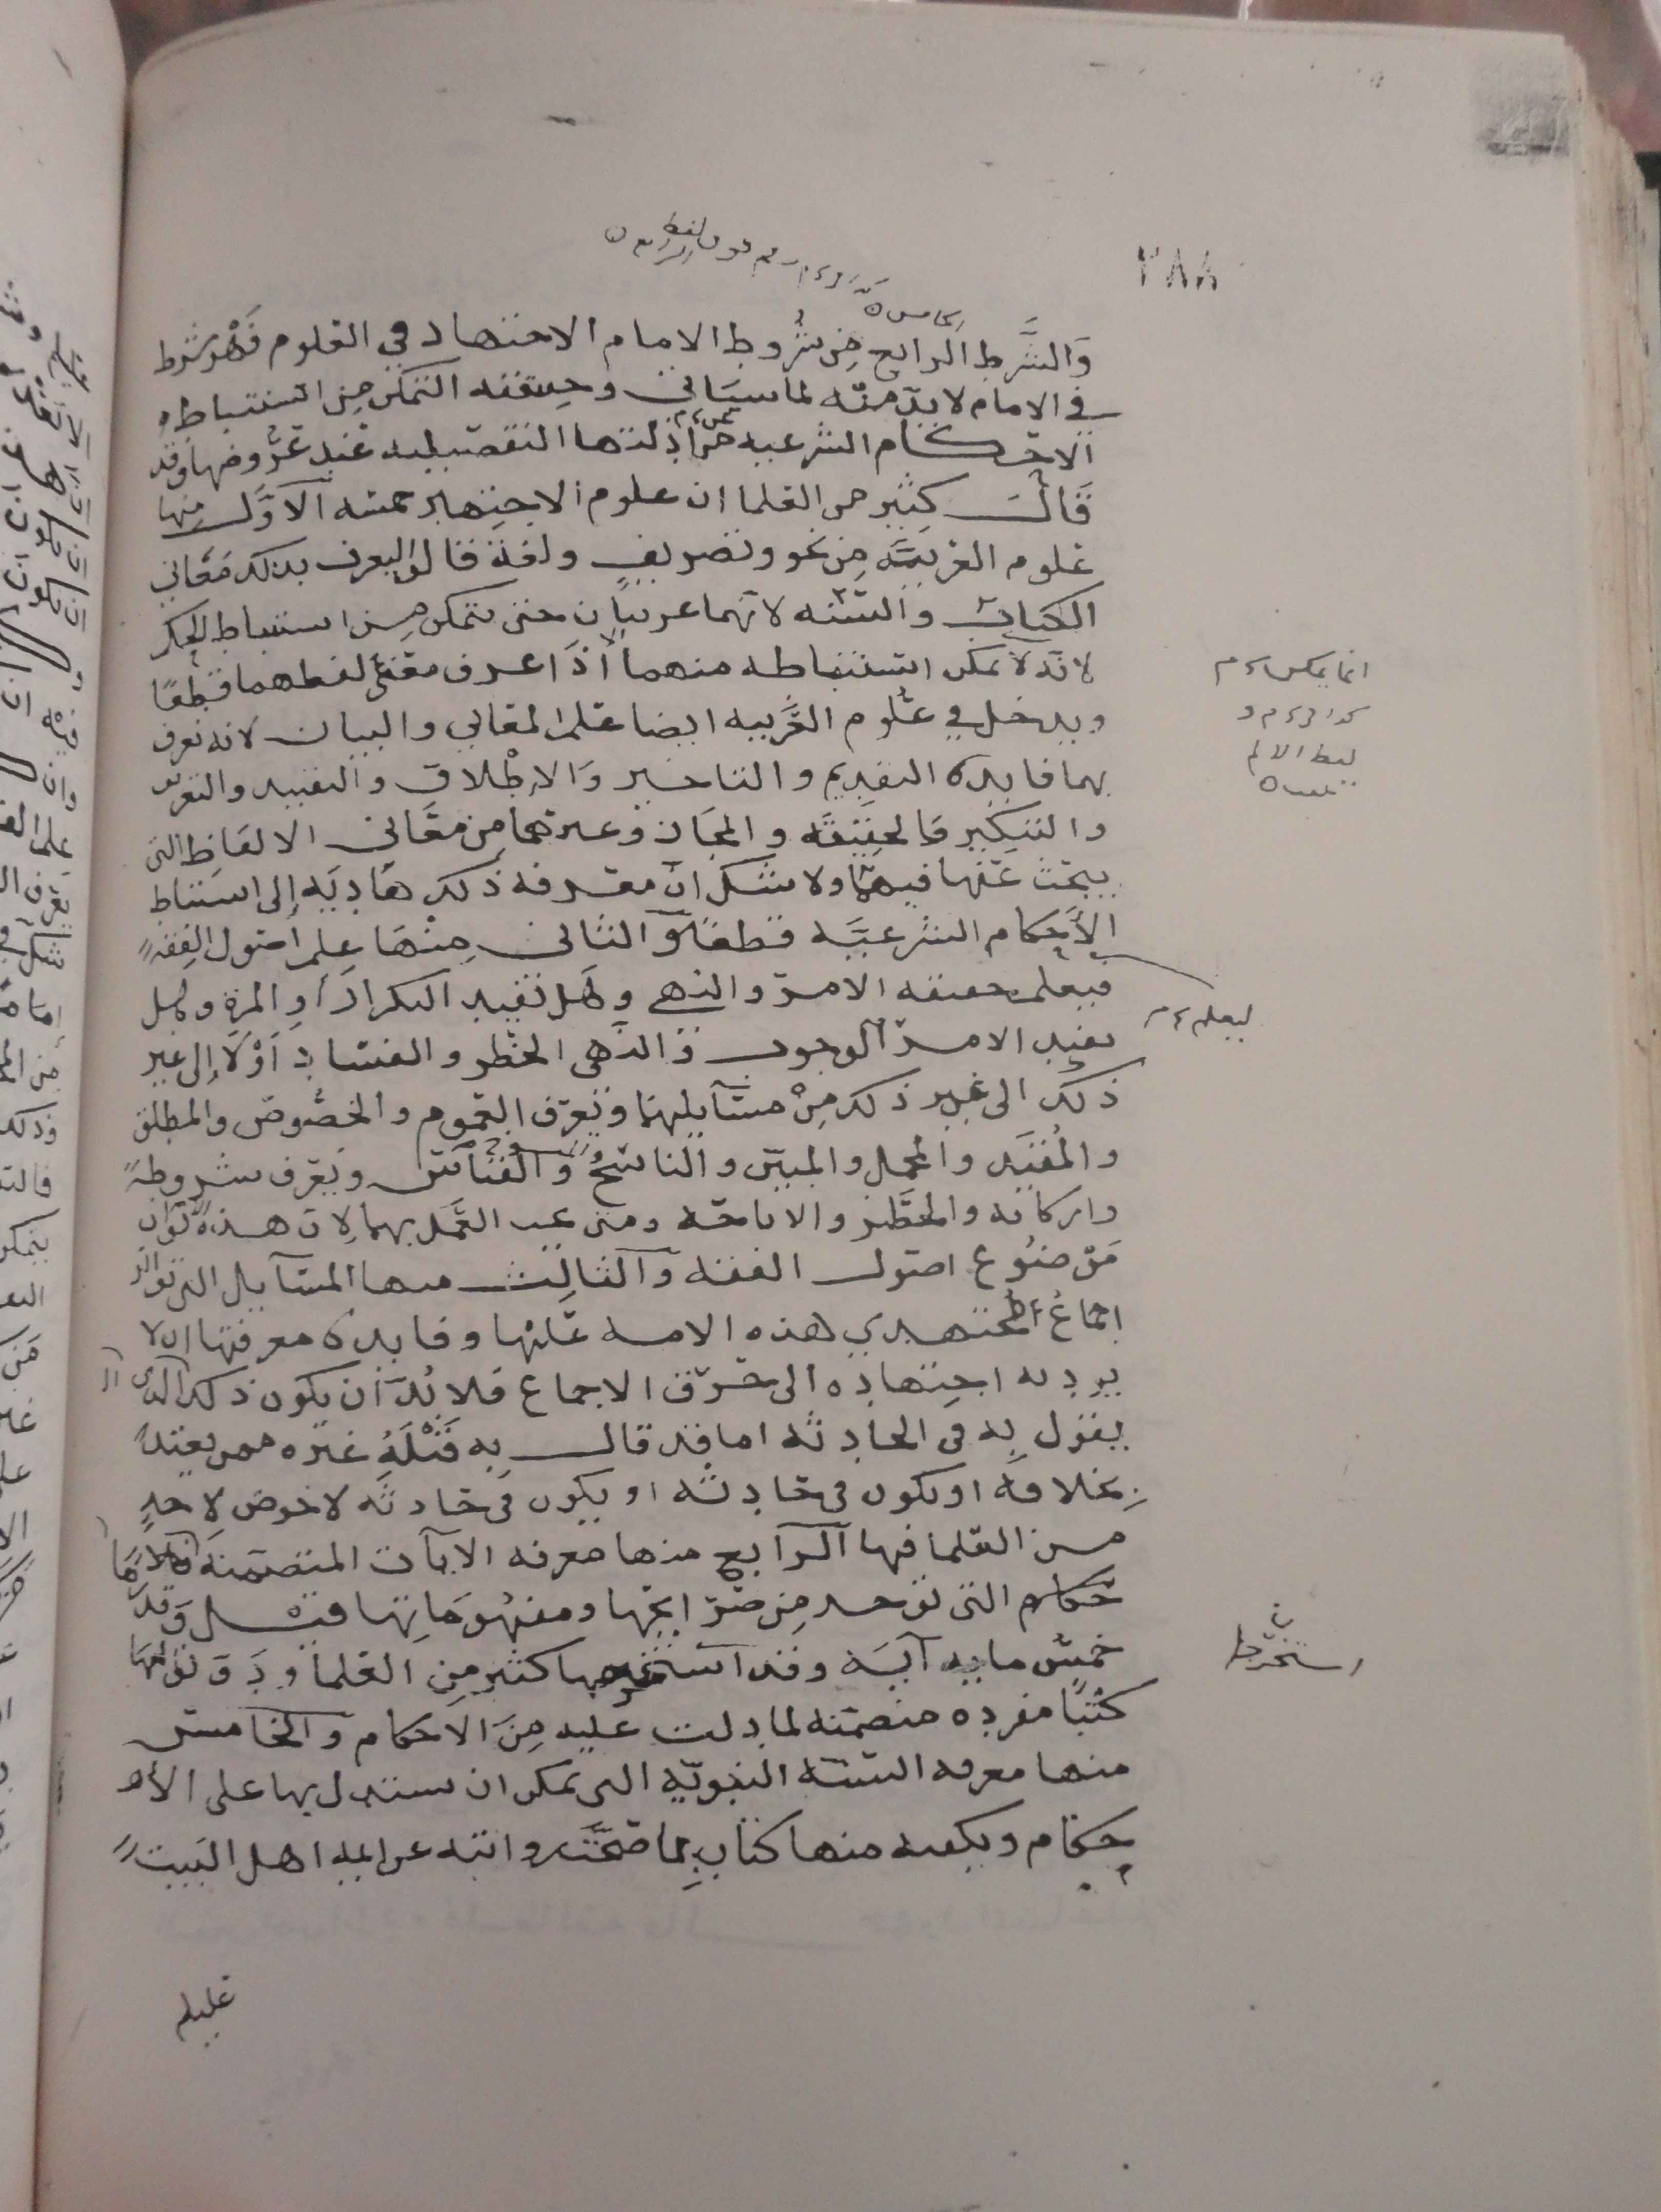 ٢٨٨
والشرط الرابع من شروط الامام الاجتهاد في العلوم فهو شرط
في الامام لا بد منه لما سياتي وحقيقته التمكن من استنباط
الاحكام الشرعيه عن ادلتها التفصيليه عند عروضها وقد
قال كثير من العلما ان علوم الاجتهاد خمسه الاول منها
علوم العربيه من نحو وتصريف ولغة قالوا ليعرف بذلك معاني
الكتاب والسنه لانهما عربيان حتى يتمكن من استنباط الحكم
لانه لا يمكن استنباطه منهما الا اذا عرف معنى لفظهما قطعا
ويدخل في علوم العربيه ايضا علم المعاني والبيان لانه يعرف
بهما فايده التقديم والتاخير والاطلاق والتقييد والتعريف
والتنكير والحقيقه والمجاز وغيرهما من معاني الالفاظ التي
يبحث عنها فيهما ولا شك ان معرفه ذلك هاديه الى استنباط
الاحكام الشرعيه قطعا والثاني منها علم اصول الفقه
فيعلم حقيقه الامر والنهي وهل تفيد التكرار او المرة وهل
يفيد الامر الوجوب والنهي الحظر والفساد او لا الى غير
ذلك الى غير ذلك من مسايلهما ويعرف العموم والخصوص والمطلق
والمقيد والمجمل والمبين والناسخ والقياس ويعرف شروطه
واركانه والحظر والاباحه ومتى يجب العمل بهما لان هذه
موضوع اصول الفقه والثالث منها المسايل التي تواتر
اجماع المجتهدين هذه الامه عليها وفايده معرفتها ان لا
يرد به اجتهاده الى خرق الاجماع فلا بد ان يكون ذلك الذي
يقول به في الحادثه اما قد قال به قبله غيره ممن يعتد
بخلافه او يكون في حادثه او يكون في حادثه لا خوض لاحد
من العلما فيها الرابع منها معرفه الايات المتضمنه
حكام التي توخذ من صرايحها ومفهوماتها قيل وقدر
خمس مايه آيه وقد استخرجها كثير من العلما و
كتبا مفرده متضمنه لما دلت عليه من الاحكام والخامس
منها معرفه السنه النبويه التي يمكن ان يستدل بها على الا
حكام ويكفيه منها كتاب مما صحت روايته عن ايمه اهل البيت
ليعلم
عليهم